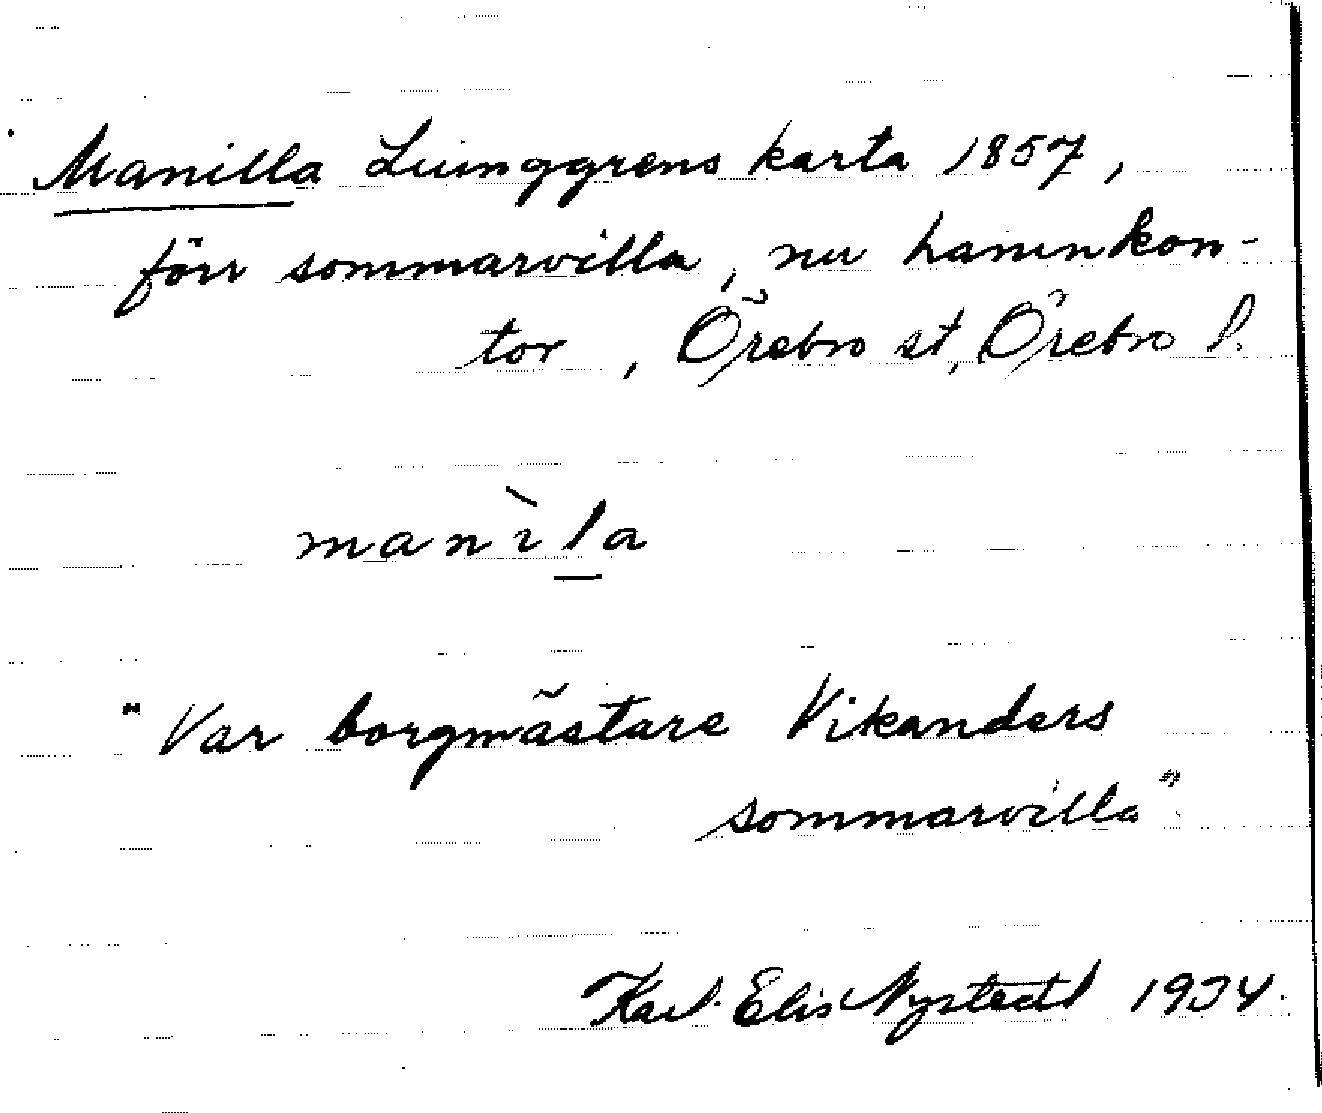 Manilla Ljunggrens karta 1857,
förr sommarvilla, nu hamnkon-
tor, Örebro st, Örebro l.
manìla
"Var borgmästare Vikanders
sommarvilla"
Karl-Elis Nystedt 1934.